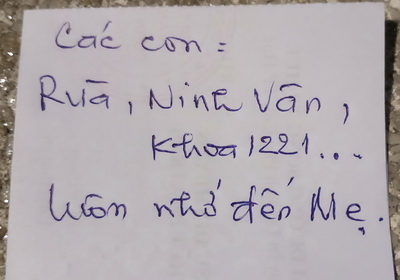 Các con:
Rùa, Ninh Vân,
Khoa 1221...
luôn nhớ đến Mẹ.